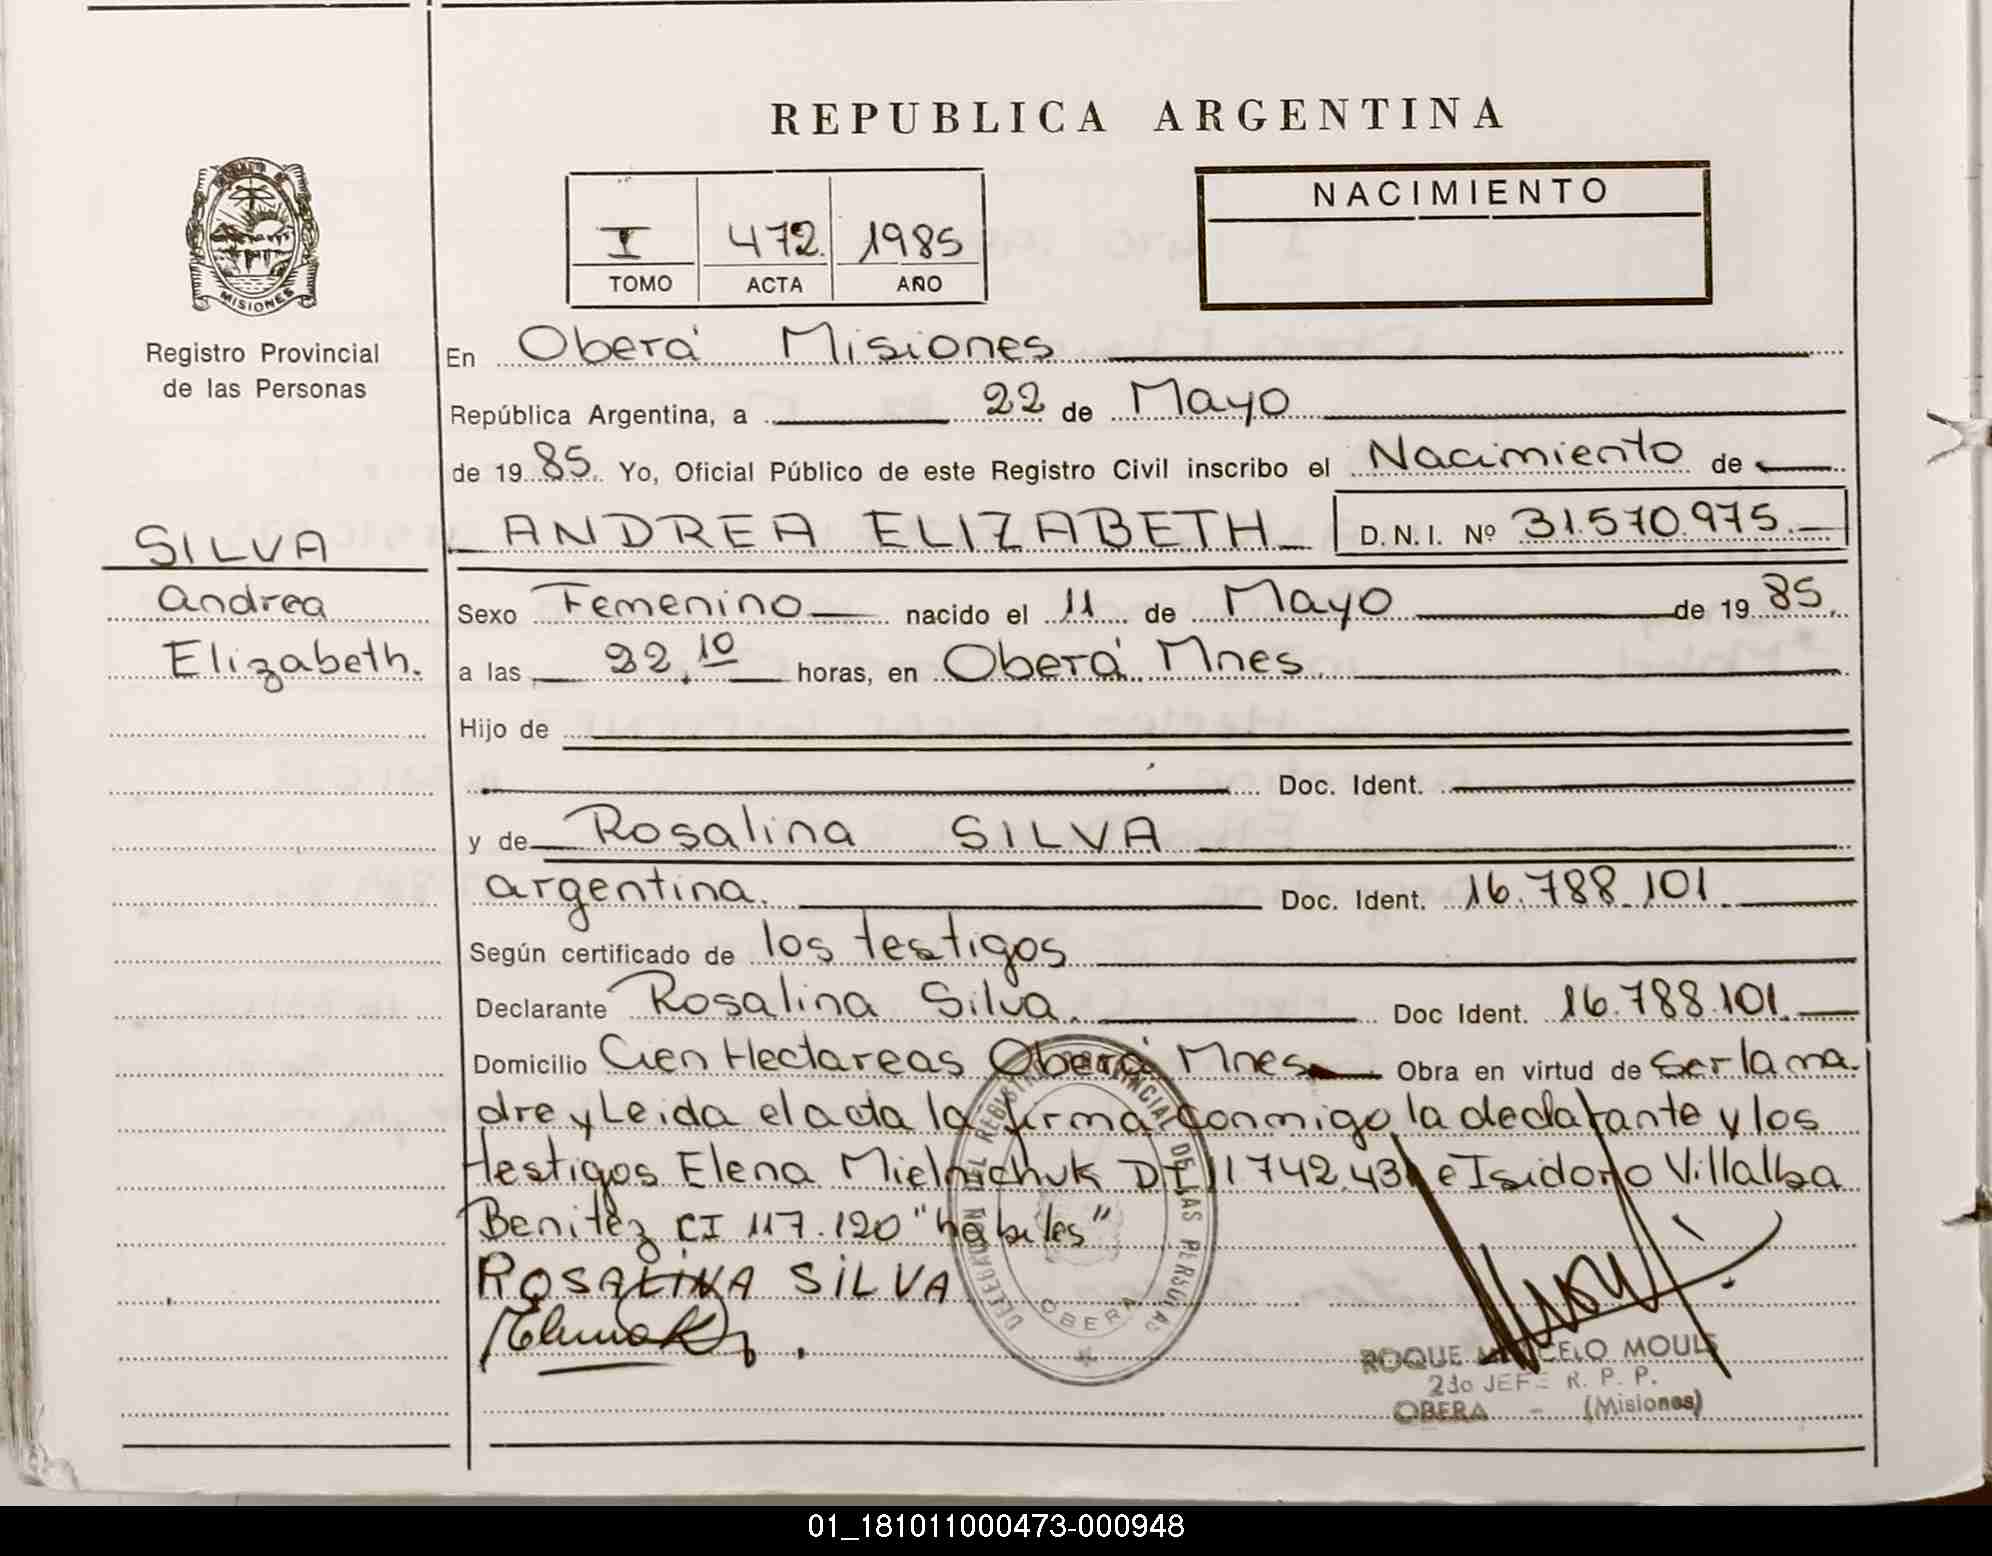 REPUBLICA ARGENTINA
MISIONES
Registro Provincial
de las Personas
I 472 1985
TOMO ACTA AÑO
NACIMIENTO
En Oberá Misiones
República Argentina, a 22 de Mayo
de 1985. Yo, Oficial Público de este Registro Civil inscribo el Nacimiento de
SILVA
Andrea
Elizabeth.
ANDREA ELIZABETH D.N.I. Nº 31.570.975.
Sexo Femenino nacido el 11 de Mayo de 1985.
a las 22,10 horas, en Oberá Mnes.
Hijo de
Doc. Ident.
y de Rosalina SILVA
argentina. Doc. Ident. 16.788.101.
Según certificado de los testigos
Declarante Rosalina Silva. Doc Ident. 16.788.101.
Domicilio Cien Hectareas Oberá Mnes Obra en virtud de ser la ma
dre y Leida el acta la firma conmigo la declarante y los
testigos Elena Mielnichuk DI 11742.431 e Isidoro Villalba
Benitez CI 117.120 "habiles"
ROSALINA SILVA
DELEGACION DEL REGISTRO PROVINCIAL DE LAS PERSONAS
OBERA
ROQUE MARCELO MOULE
2do JEFE R. P. P.
OBERA - (Misiones)
01_181011000473-000948